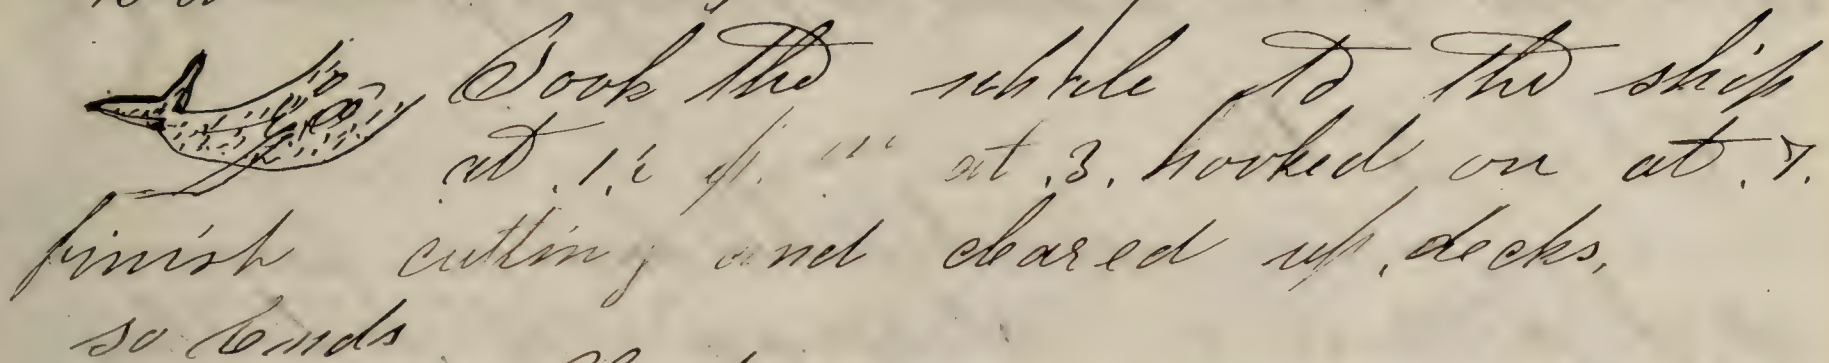 Took the whale to the ship
at .1. p. m at .3. hooked on at .7.
finish cutting and cleared up decks,
so Ends